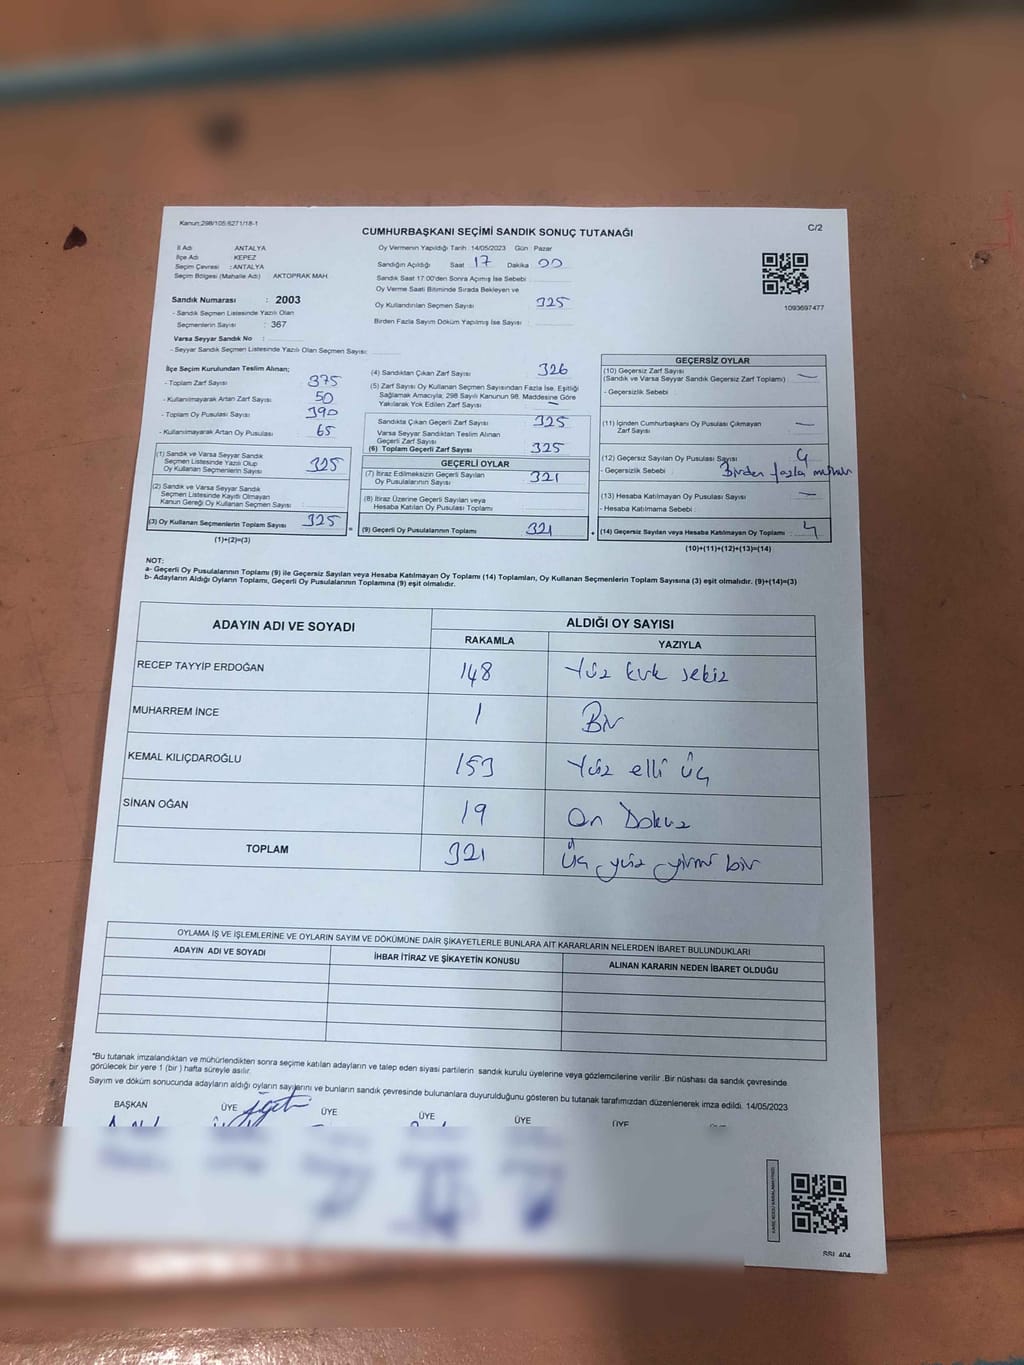 Kanun;298/105.6271/18-1
CUMHURBAŞKANI SEÇİMİ SANDIK SONUÇ TUTANAĞI
C/2
İl Adı : ANTALYA
İlçe Adı : KEPEZ
Seçim Çevresi : ANTALYA
Seçim Bölgesi (Mahalle Adı) : AKTOPRAK MAH.
Sandık Numarası : 2003
- Sandık Seçmen Listesinde Yazılı Olan
Seçmenlerin Sayısı : 367
Varsa Seyyar Sandık No :
- Seyyar Sandık Seçmen Listesinde Yazılı Olan Seçmen Sayısı:
Oy Vermenin Yapıldığı Tarih :14/05/2023 Gün : Pazar
Sandığın Açıldığı Saat 17 Dakika 00
Sandık Saat 17:00'den Sonra Açımış İse Sebebi :
Oy Verme Saati Bitiminde Sırada Bekleyen ve
Oy Kullandırılan Seçmen Sayısı : 325
Birden Fazla Sayım Döküm Yapılmış İse Sayısı :
1093697477
İlçe Seçim Kurulundan Teslim Alınan;
- Toplam Zarf Sayısı : 375
- Kullanılmayarak Artan Zarf Sayısı : 50
- Toplam Oy Pusulası Sayısı : 390
- Kullanılmayarak Artan Oy Pusulası : 65
(1) Sandık ve Varsa Seyyar Sandık
Seçmen Listesinde Yazılı Olup
Oy Kullanan Seçmenlerin Sayısı : 325
(2) Sandık ve Varsa Seyyar Sandık
Seçmen Listesinde Kayıtlı Olmayan
Kanun Gereği Oy Kullanan Seçmen Sayısı :
(3) Oy Kullanan Seçmenlerin Toplam Sayısı : 325
(1)+(2)=(3)
(4) Sandıktan Çıkan Zarf Sayısı : 326
(5) Zarf Sayısı Oy Kullanan Seçmen Sayısından Fazla İse, Eşitliği
Sağlamak Amacıyla; 298 Sayılı Kanunun 98. Maddesine Göre
Yakılarak Yok Edilen Zarf Sayısı : —
Sandıkta Çıkan Geçerli Zarf Sayısı : 325
Varsa Seyyar Sandıktan Teslim Alınan
Geçerli Zarf Sayısı :
(6) Toplam Geçerli Zarf Sayısı : 325
GEÇERLİ OYLAR
(7) İtiraz Edilmeksizin Geçerli Sayılan
Oy Pusulalarının Sayısı : 321
(8) İtiraz Üzerine Geçerli Sayılan veya
Hesaba Katılan Oy Pusulası Toplamı :
= (9) Geçerli Oy Pusulalarının Toplamı : 321
GEÇERSİZ OYLAR
(10) Geçersiz Zarf Sayısı
(Sandık ve Varsa Seyyar Sandık Geçersiz Zarf Toplamı) : —
- Geçersizlik Sebebi :
(11) İçinden Cumhurbaşkanı Oy Pusulası Çıkmayan
Zarf Sayısı : —
(12) Geçersiz Sayılan Oy Pusulası Sayısı : 4
- Geçersizlik Sebebi : Birden fazla mühür
(13) Hesaba Katılmayan Oy Pusulası Sayısı : —
- Hesaba Katılmama Sebebi :
+ (14) Geçersiz Sayılan veya Hesaba Katılmayan Oy Toplamı : 4
(10)+(11)+(12)+(13)=(14)
NOT:
a- Geçerli Oy Pusulalarının Toplamı (9) ile Geçersiz Sayılan veya Hesaba Katılmayan Oy Toplamı (14) Toplamları, Oy Kullanan Seçmenlerin Toplam Sayısına (3) eşit olmalıdır. (9)+(14)=(3)
b- Adayların Aldığı Oyların Toplamı, Geçerli Oy Pusulalarının Toplamına (9) eşit olmalıdır.
ADAYIN ADI VE SOYADI
ALDIĞI OY SAYISI
RAKAMLA YAZIYLA
RECEP TAYYİP ERDOĞAN 148 Yüz kırk sekiz
MUHARREM İNCE 1 Bir
KEMAL KILIÇDAROĞLU 153 Yüz elli üç
SİNAN OĞAN 19 On Dokuz
TOPLAM 321 Üç yüz yirmi bir
OYLAMA İŞ VE İŞLEMLERİNE VE OYLARIN SAYIM VE DÖKÜMÜNE DAİR ŞİKAYETLERLE BUNLARA AİT KARARLARIN NELERDEN İBARET BULUNDUKLARI
ADAYIN ADI VE SOYADI İHBAR İTİRAZ VE ŞİKAYETİN KONUSU ALINAN KARARIN NEDEN İBARET OLDUĞU
*Bu tutanak imzalandıktan ve mühürlendikten sonra seçime katılan adayların ve talep eden siyasi partilerin sandık kurulu üyelerine veya gözlemcilerine verilir .Bir nüshası da sandık çevresinde
görülecek bir yere 1 (bir ) hafta süreyle asılır.
Sayım ve döküm sonucunda adayların aldığı oyların sayılarını ve bunların sandık çevresinde bulunanlara duyurulduğunu gösteren bu tutanak tarafımızdan düzenlenerek imza edildi. 14/05/2023
BAŞKAN ÜYE ÜYE ÜYE ÜYE ÜYE